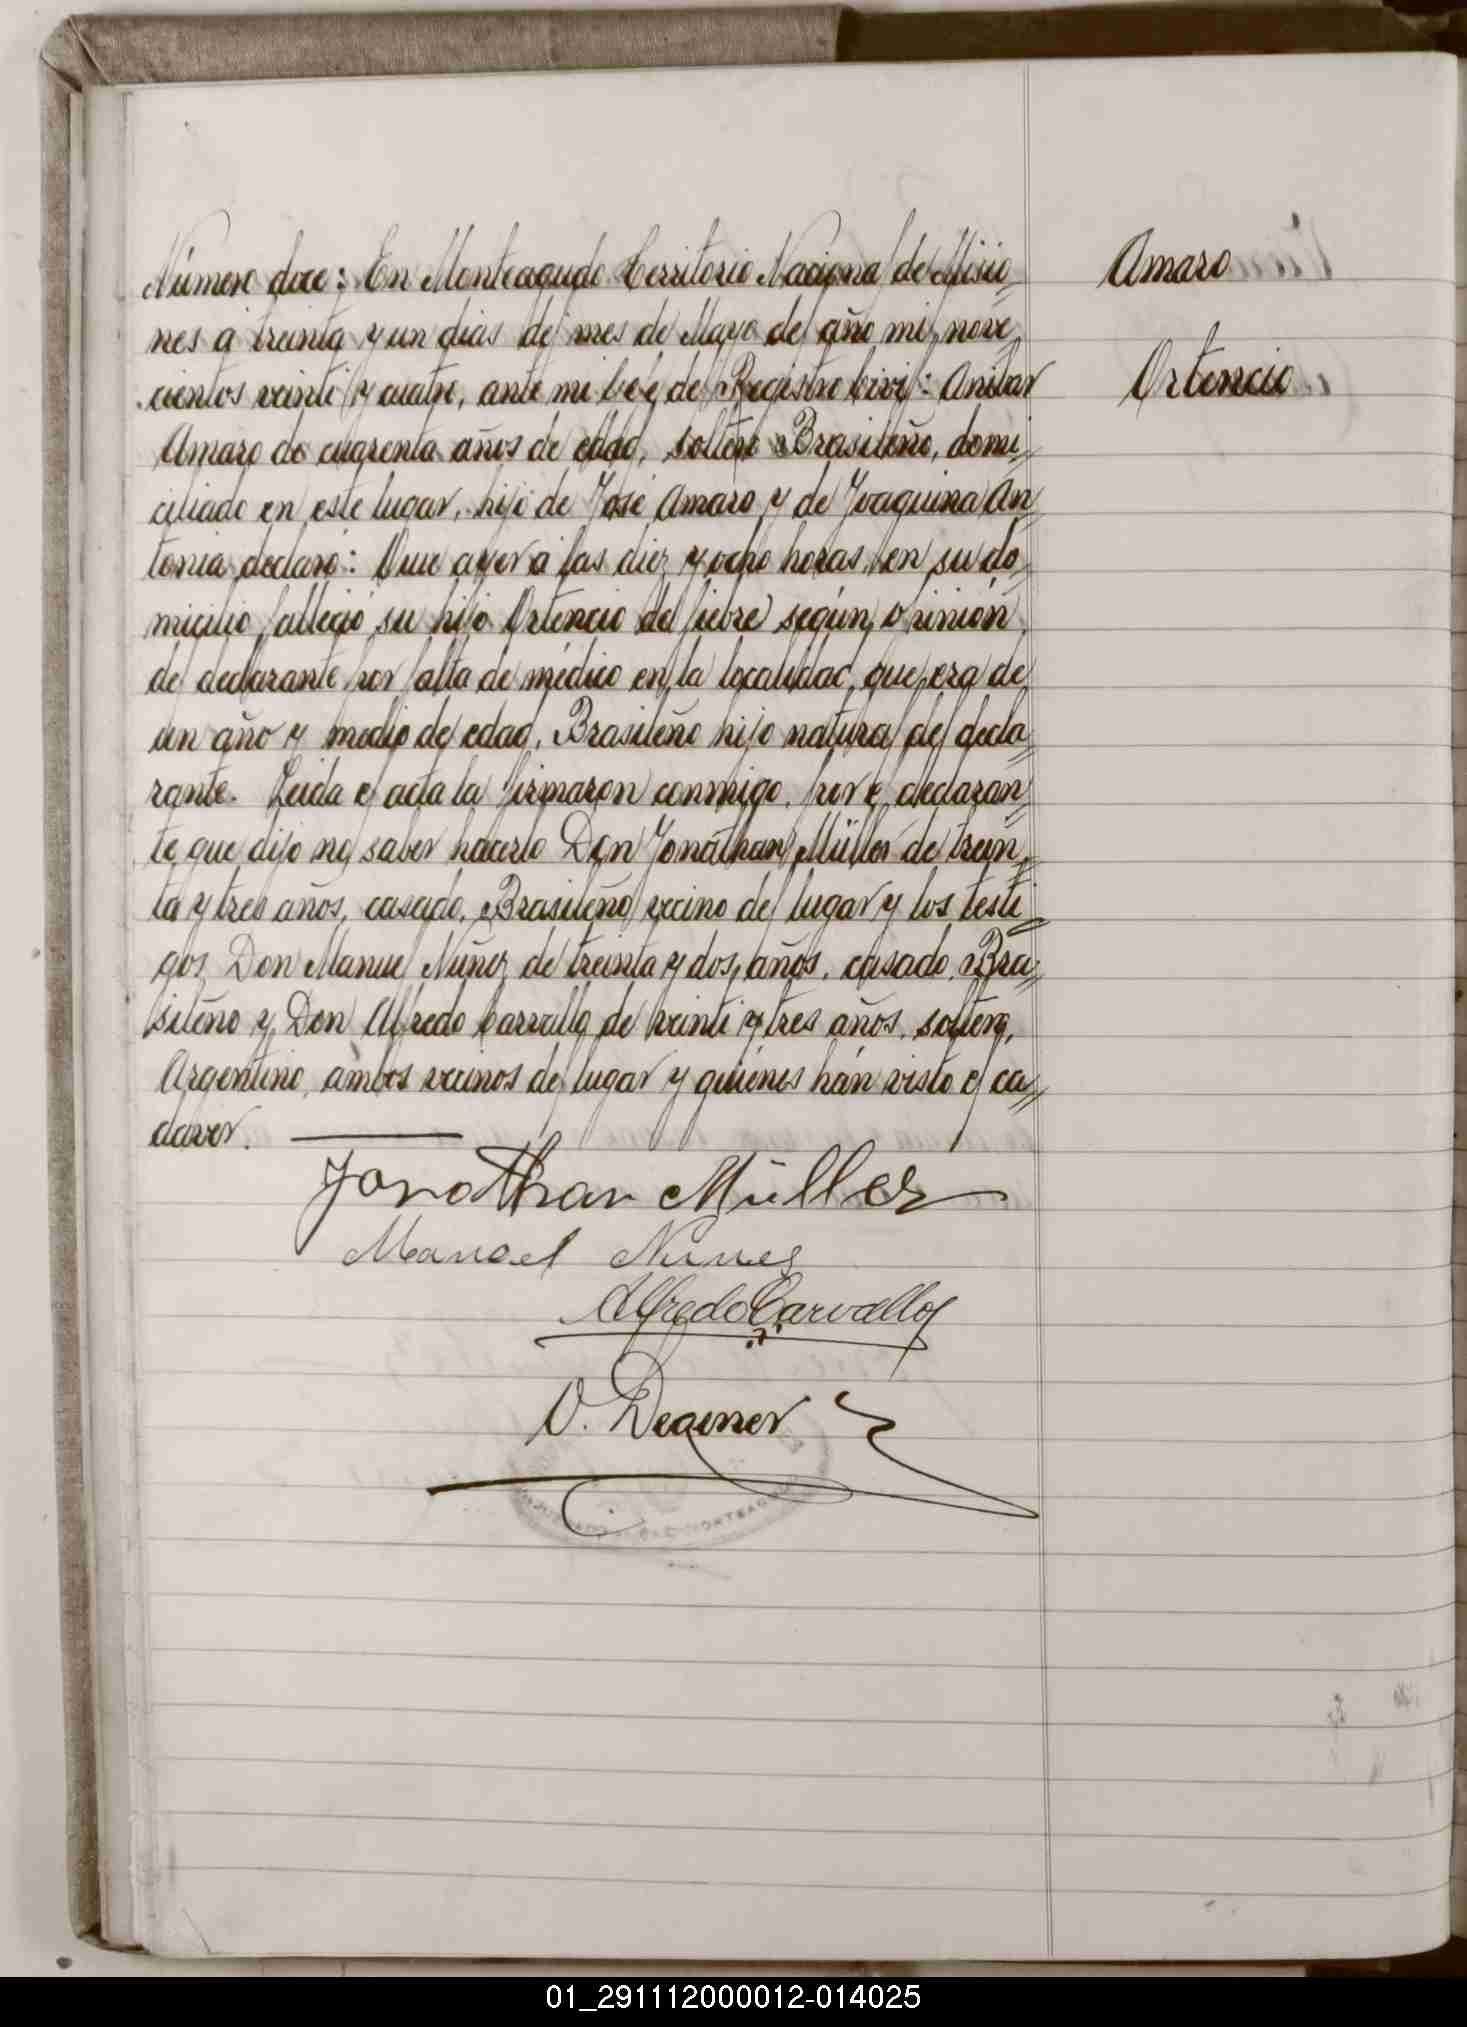 Número doce: En Monteagudo Territorio Nacional de Misio-
nes á treinta y un dias del mes de Mayo del año mil nove-
cientos veinti y cuatro, ante mi Gefe del Registro Civil: Anibar
Amaro de cuarenta años de edad, soltero Brasileño, domi-
ciliado en este lugar, hijo de José Amaro y de Joaquina An-
tonia declaró: Que ayer á las diez y ocho horas, en su do-
micilio falleció su hijo Ortencio de fiebre según opinión
del declarante por falta de médico en la localidad, que era de
un año y medio de edad, Brasileño hijo natural del decla-
rante. Leida el acta la firmaron conmigo, por el declaran-
te que dijo no saber hacerlo Don Jonathan Müller de trein-
ta y tres años, casado, Brasileño vecino del lugar y los testi-
gos Don Manuel Núñez de treinta y dos años, casado, Bra-
sileño y Don Alfredo Carvallo de veinti y tres años, soltero,
Argentino, ambos vecinos del lugar y quiénes hán visto el ca-
daver.
Amaro
Ortencio
Jonathan Müller
Manoel Nunes
Alfredo Carvallo
O. Degener
01_291112000012-014025